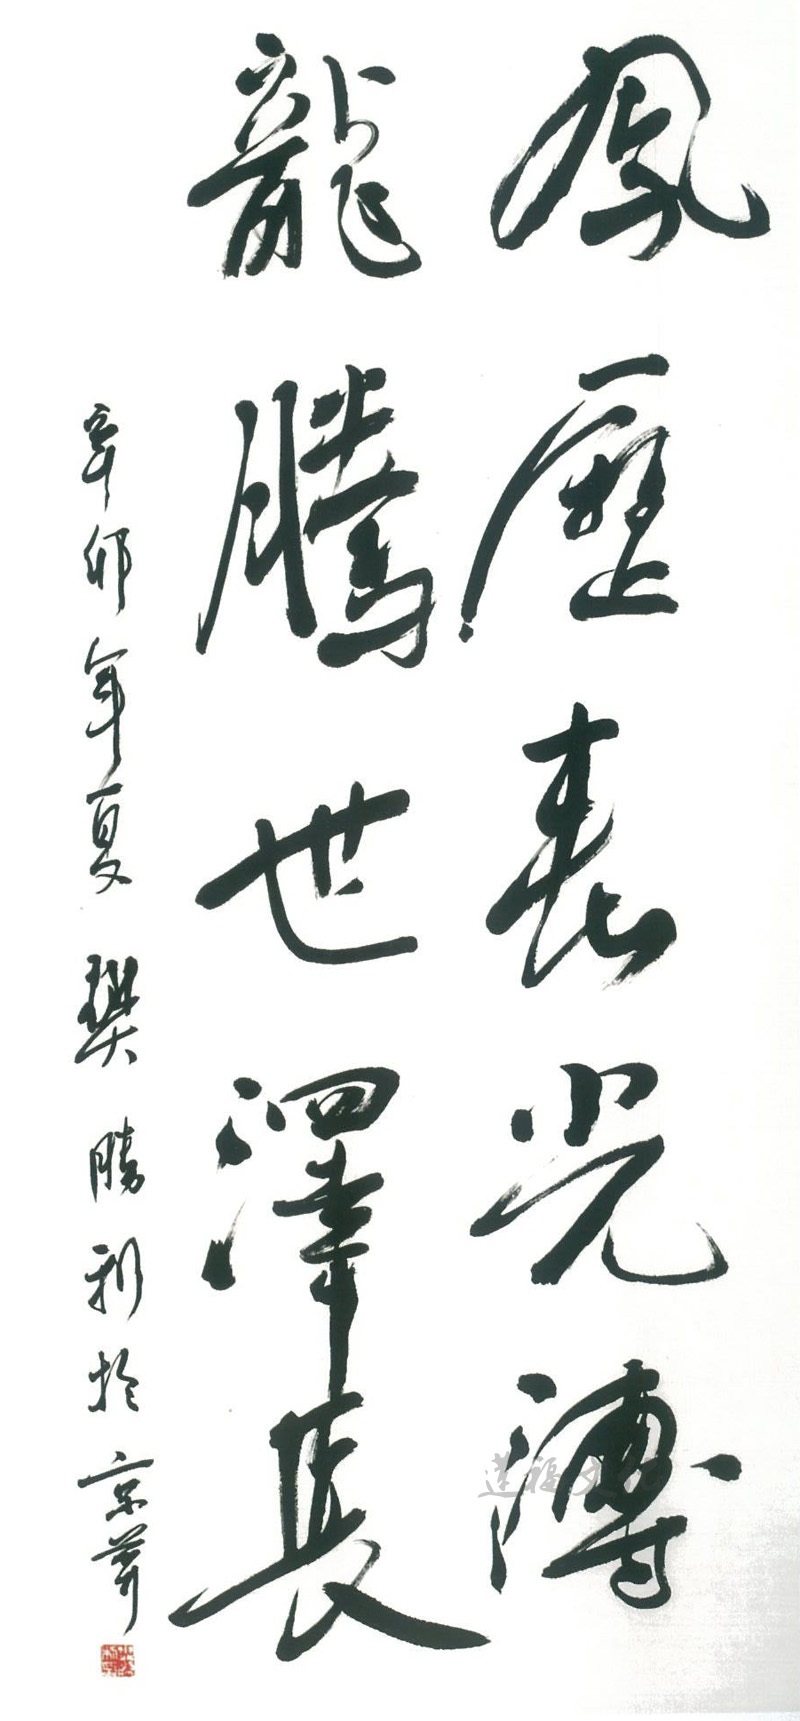 鳳歷春光溥
龍騰世澤長
辛卯年夏 樊勝利於京華